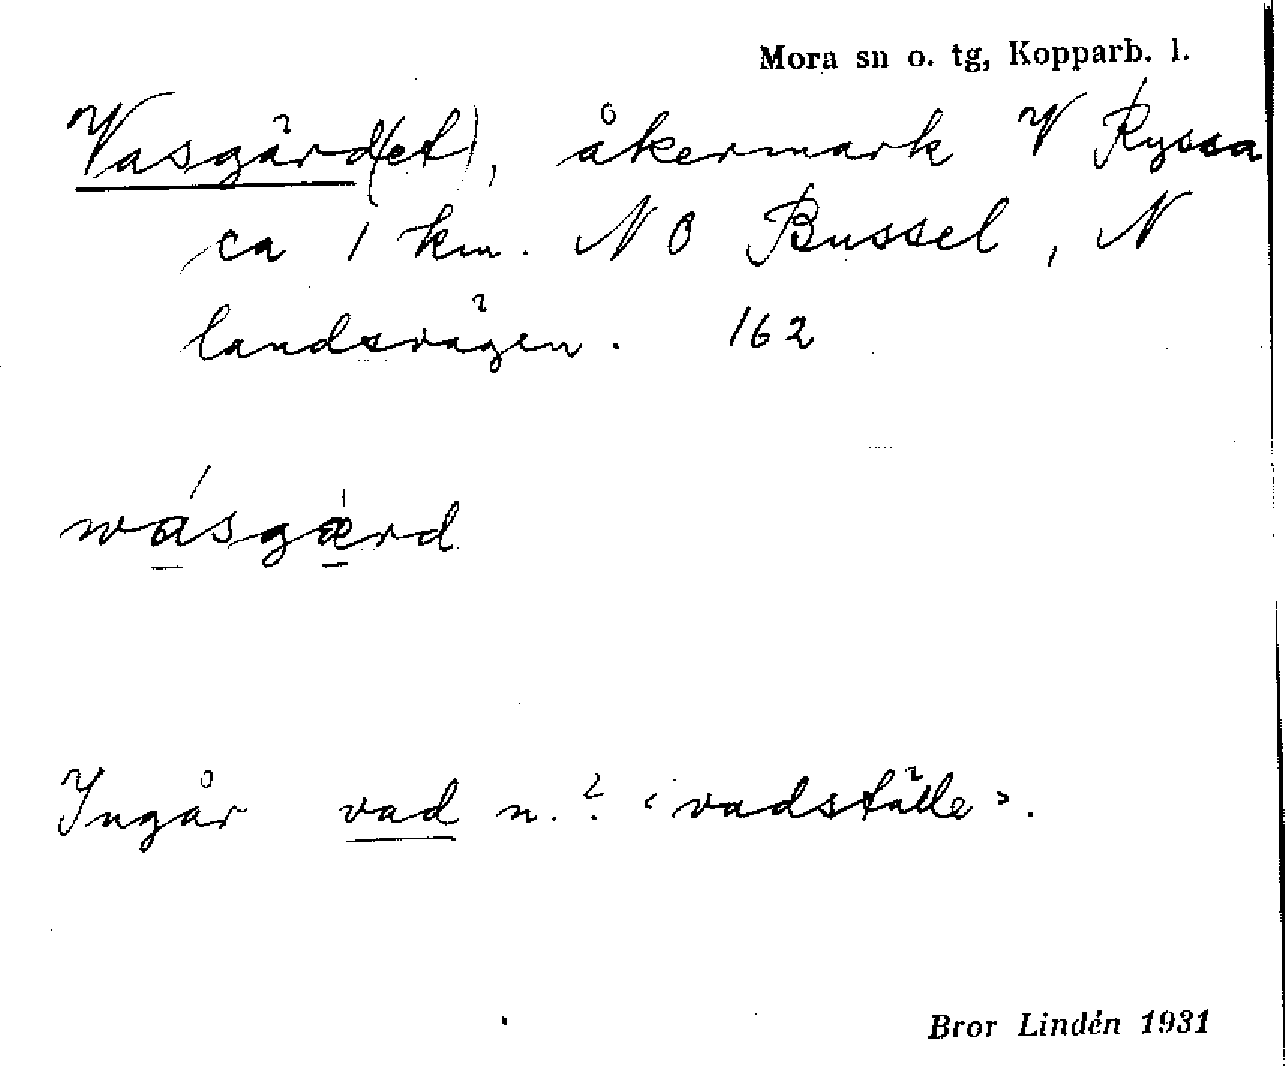 Mora sn o. tg, Kopparb. l.
Vasgärd(et), åkermark V Ryssa
ca 1 km. NO Bussel, N
landsvägen. 162
wásgærd
Ingår vad n.? ‹vadställe›.
Bror Lindén 1931